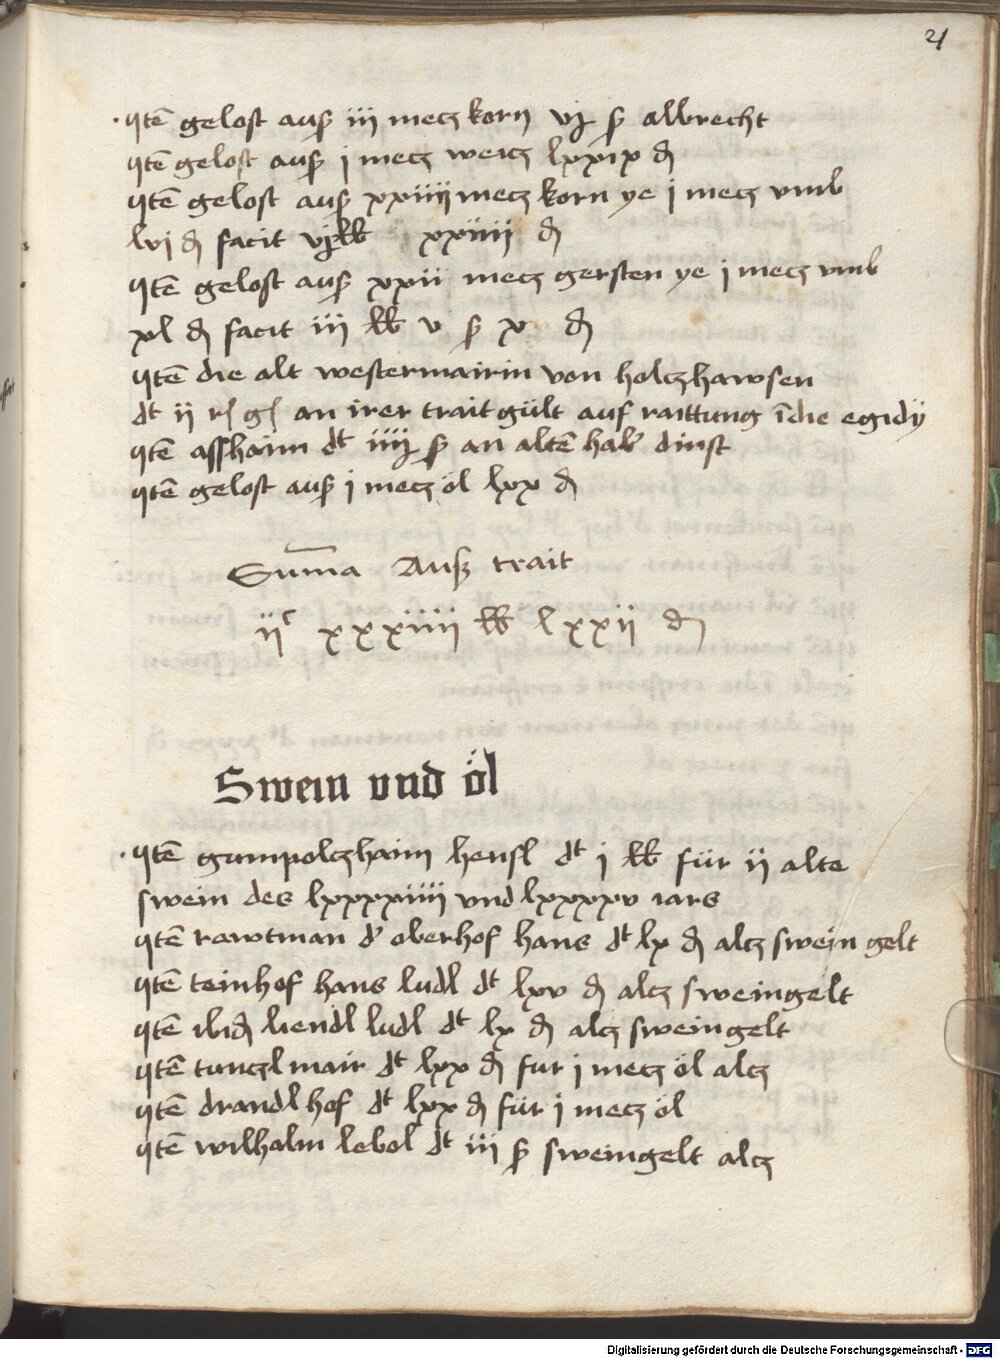 21
Itē gelost auß iii mecz korn vj ß albrecht
Itē gelost auß j mecz weicz lxxix ₰
Itē gelost auß xxiiij mecz korn ye j mecz vmb
lvj ₰ facit vj lb xxiiij ₰
Itē gelost auß xxii mecz gersten ye j mecz vmb
xl ₰ facit iij lb v ß x ₰
Itē die alt westermairin von holczhawsen
dt ii rſ gſ an irer trait gült auf raittung ī die egidÿ
Itē asshaim dt iiij ß an altē hab dinst
Itē gelost auß j mecz öl lxx ₰
Sum̄a Auß trait
iiᶜ xxxiiii lb lxxii ₰
Swein vnd öl
Itē gumpolczhaim hensl dt j lb für ii alte
swein des lxxxxiiii vnd lxxxxv iars
Itē rawtman dʼ oberhof hans dt lx ₰ alcz swein gelt
Itē teinhof hans ludl dt lxv ₰ alcz sweingelt
Itē ibid̄ liendl ludl dt lx ₰ alcz sweingelt
Itē tunczlmair dt lxx ₰ fur j mecz öl alcz
Itē drandlhof dt lxx ₰ für j mecz öl
Itē wilhalm lebol dt iij ß sweingelt alcz
Digitalisierung gefördert durch die Deutsche Forschungsgemeinschaft - DFG